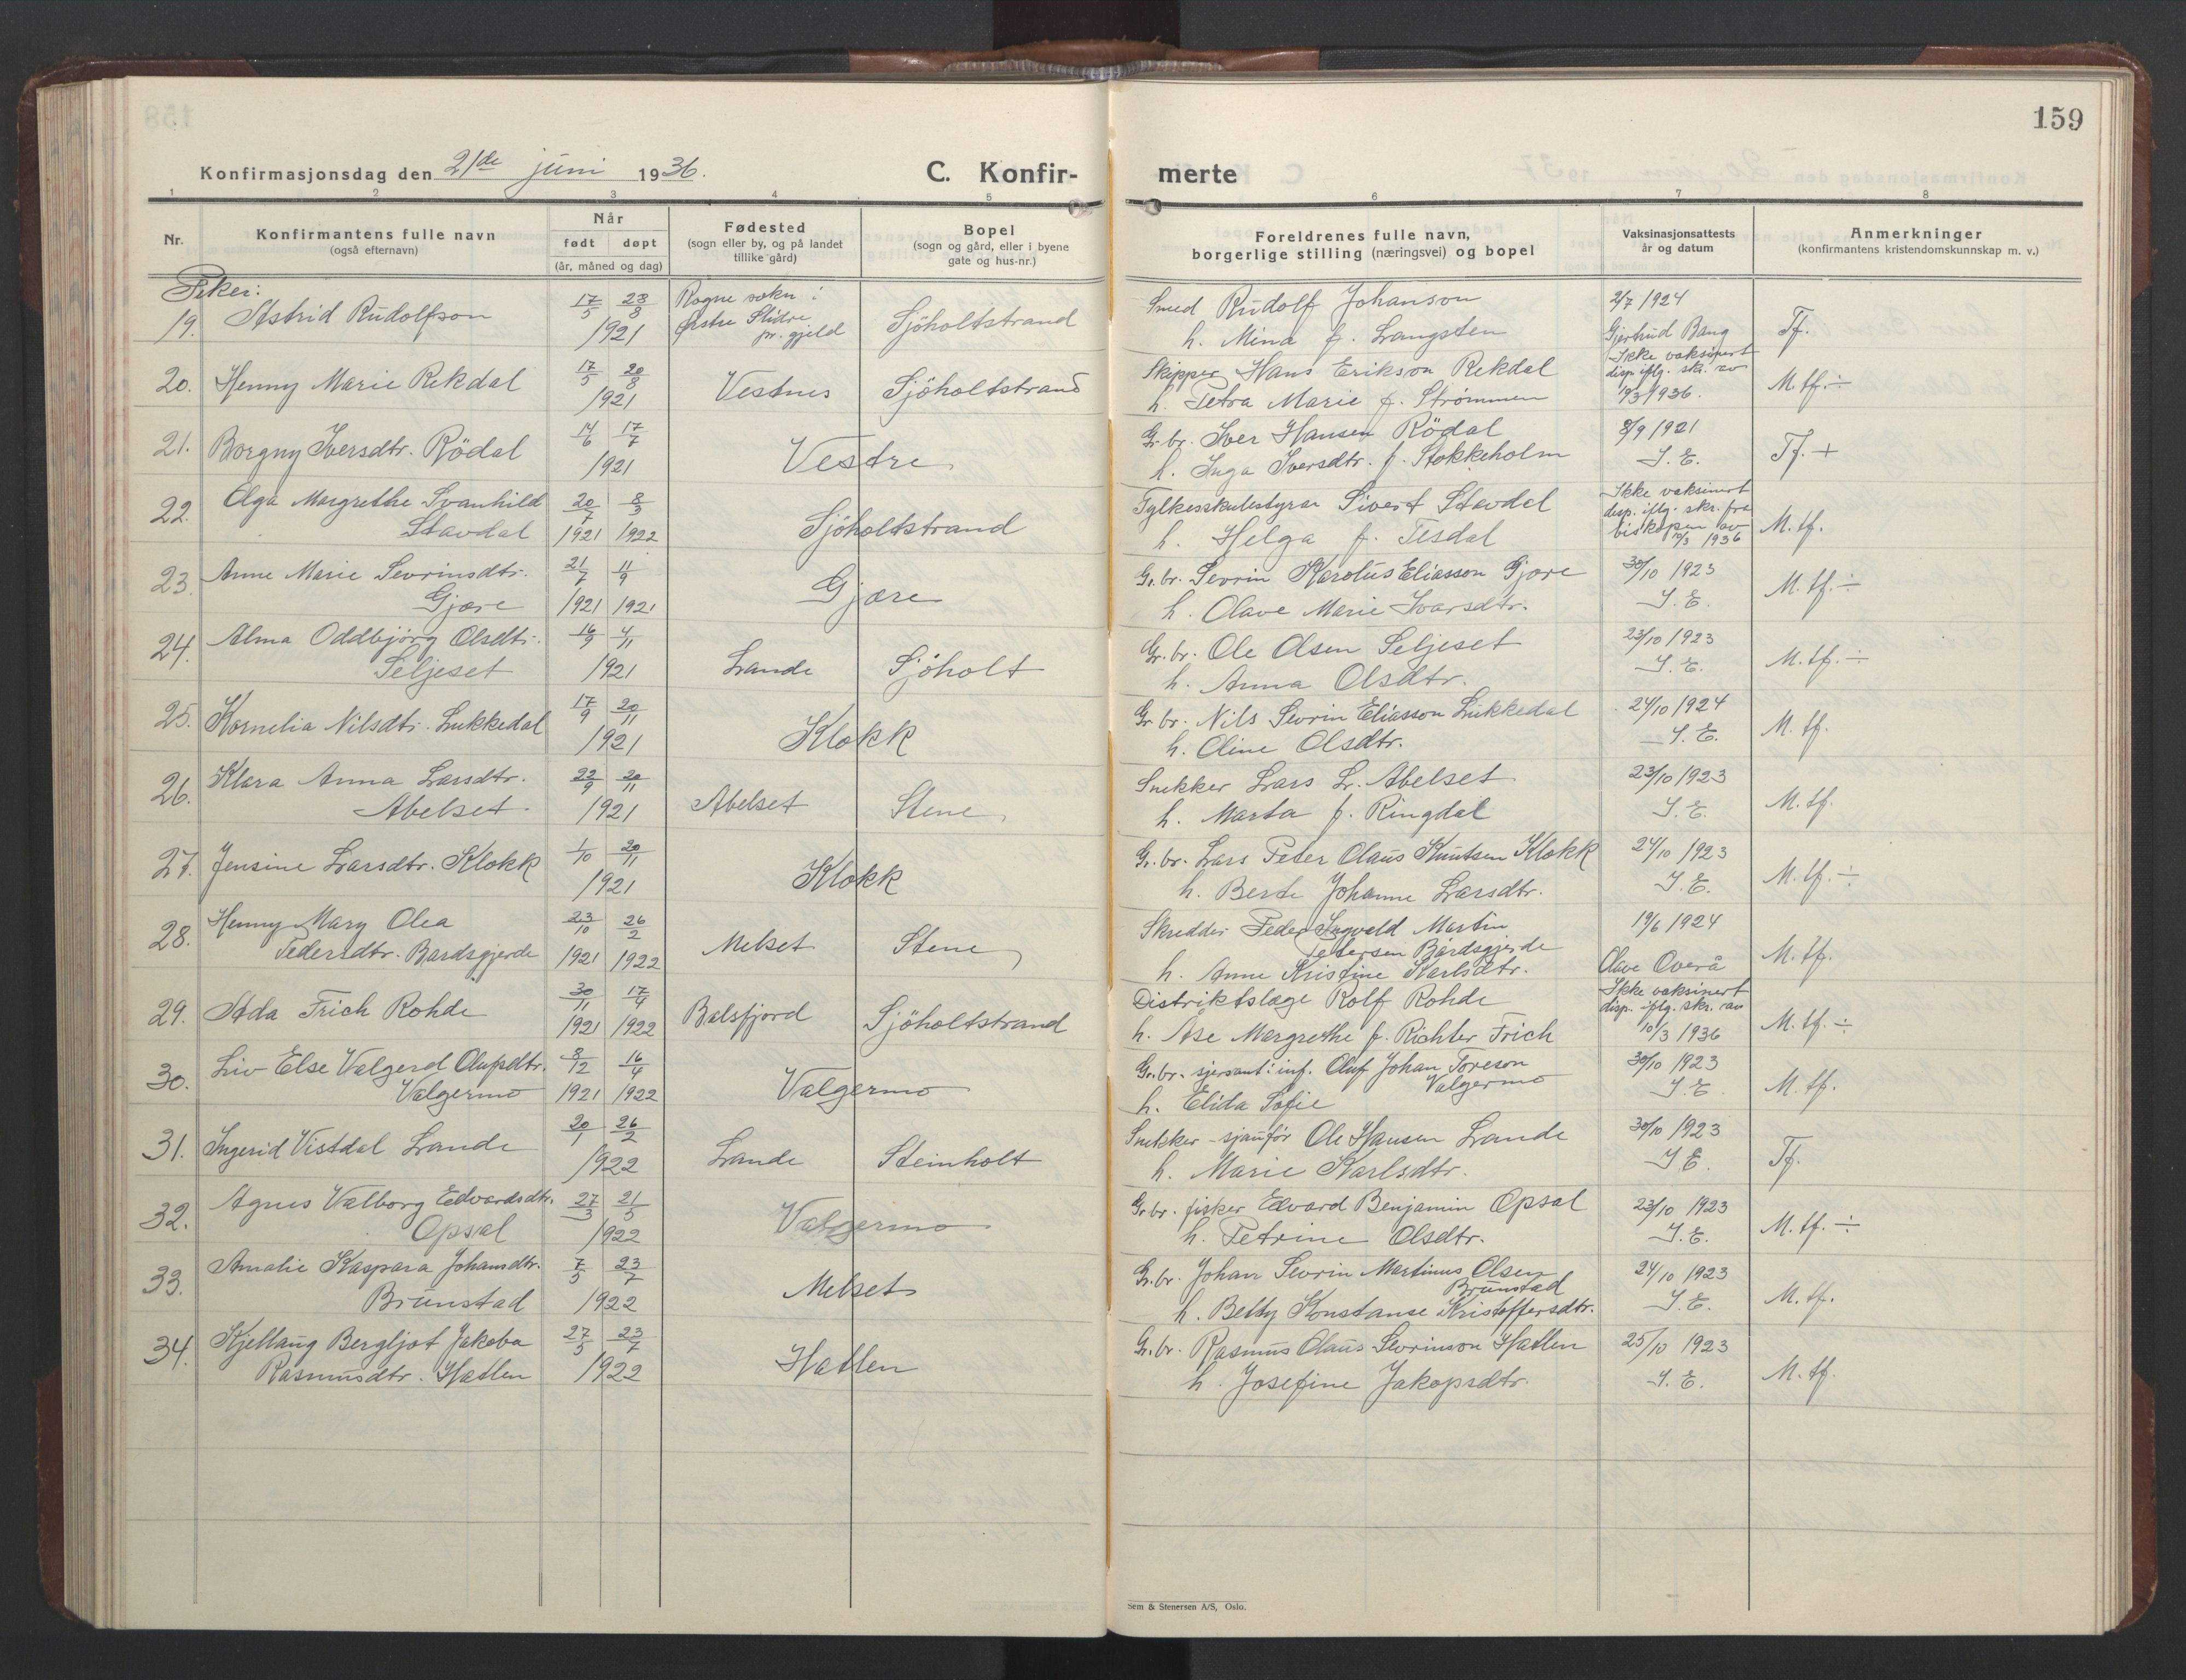 159
Konfirmasjonsdag den 21de juni 1936.
C. Konfir-
merte
1 2 3 4 5 6 7 8
Nr.
Konfirmantens fulle navn
(også efternavn)
Når
født døpt
(år, måned og dag)
Fødested
(sogn eller by, og på landet
tillike gård)
Bopel
(sogn og gård, eller i byene
gate og hus-nr.)
Foreldrenes fulle navn,
borgerlige stilling (næringsvei) og bopel
Vaksinasjonsattests
år og datum
Anmerkninger
(konfirmantens kristendomskunnskap m. v.)
Piker:
19. Astrid Rudolfson
17/5 28/8
1921
Rogne sokn i
Østre Slidre
pr. gjeld
Sjöholtstrand
Smed Rudolf Johanson
h. Mina f. Langsten
2/7 1924
Gjertrud Bang
Tf.
20. Henny Marie Rekdal
17/5 20/8
1921
Vestnes
Sjöholtstrand
Skipper Hans Erikson Rekdal
h. Petra Marie f. Strømmen
Ikke vaksinert
disp. iflg. skr. av
10/3 1936.
M. tf. ÷
21. Borgny Iversdtr. Rödal
14/6 17/7
1921
Vestre
Gr. br. Iver Hansen Rödal
h. Inga Iversdtr. f. Stokkeholm
8/9 1921
I. E.
Tf. +
22. Olga Margrethe Svanhild
Stavdal
20/7 8/3
1921 1922
Sjöholtstrand
Fylkesskulestyrar Sivert Stavdal
h. Helga f. Tesdal
Ikke vaksinert
disp. iflg. skr. fra
biskopen av
10/3 1936
M. tf.
23. Anne Marie Sevrinsdtr.
Gjære
21/7 11/9
1921 1921
Gjære
Gr. br. Sevrin Karolus Eliasson Gjære
h. Olave Marie Ivarsdtr.
30/10 1923
I. E.
M. tf. ÷
24. Alma Oddbjörg Olsdtr.
Seljeset
16/9 4/11
1921
Lande
Sjöholt
Gr. br. Ole Olsen Seljeset
h. Anna Olsdtr.
23/10 1923
I. E.
M. tf. ÷
25. Kornelia Nilsdtr. Lukkedal
17/9 20/11
1921
Klokk
Gr. br. Nils Sevrin Eliasson Lukkedal
h. Oline Olsdtr.
24/10 1924
I. E.
M. tf.
26. Klara Anna Larsdtr.
Abelset
22/9 20/11
1921
Abelset
Stene
Snekker Lars L. Abelset
h. Marta f. Ringdal
23/10 1923
I. E.
M. tf.
27. Jensine Larsdtr. Klokk
1/10 20/11
1921
Klokk
Gr. br. Lars Peter Olaus Knutsen Klokk
h. Berte Johanne Larsdtr.
24/10 1923
I. E.
M. tf. ÷
28. Henny Mary Olea
Pedersdtr. Bardsgjerde
23/10 26/2
1921 1922
Melset
Stene
Skredder Peder Ingvald Martin
Petersen Bårdsgjerde
h. Anne Kristine Karlsdtr.
19/6 1924
Olave Overå
M. tf.
29. Ada Frich Rohde
30/11 17/4
1921 1922
Balsfjord
Sjöholtstrand
Distriktslæge Rolf Rohde
h. Åse Margrethe f. Richter Frich
Ikke vaksinert
disp. iflg. skr. av
10/3 1936
M. tf. ÷
30. Liv Else Valgerd Olufsdtr.
Valgermo
8/12 16/4
1921 1922
Valgermo
Gr. br. sjersant i inf. Oluf Johan Toreson
Valgermo
h. Elida Sofie
30/10 1923
I. E
M. tf.
31. Ingerid Vistdal Lande
20/1 26/2
1922
Lande
Steinholt
Snekker - sjauför Ole Hansen Lande
h. Marie Karlsdtr.
30/10 1923
I E.
Tf.
32. Agnes Valborg Edvardsdtr.
Opsal
27/3 21/5
1922
Valgermo
Gr. br. fisker Edvard Benjamin Opsal
h. Petrine Olsdtr.
23/10 1923
I. E.
M. tf. ÷
33. Amalie Kaspara Johansdtr.
Brunstad
7/5 23/7
1922
Melset
Gr. br. Johan Sevrin Martinus Olsen
Brunstad
h. Betty Konstanse Kristoffersdtr.
24/10 1923
I. E.
M. tf.
34. Kjellaug Bergljot Jakoba
Rasmusdtr. Hatlen
27/5 23/7
1922
Hatlen
Gr. br. Rasmus Olaus Sevrinson Hatlen
h. Josefine Jakopsdtr.
25/10 1923
I. E.
M. tf.
Sem & Stenersen A/S, Oslo.